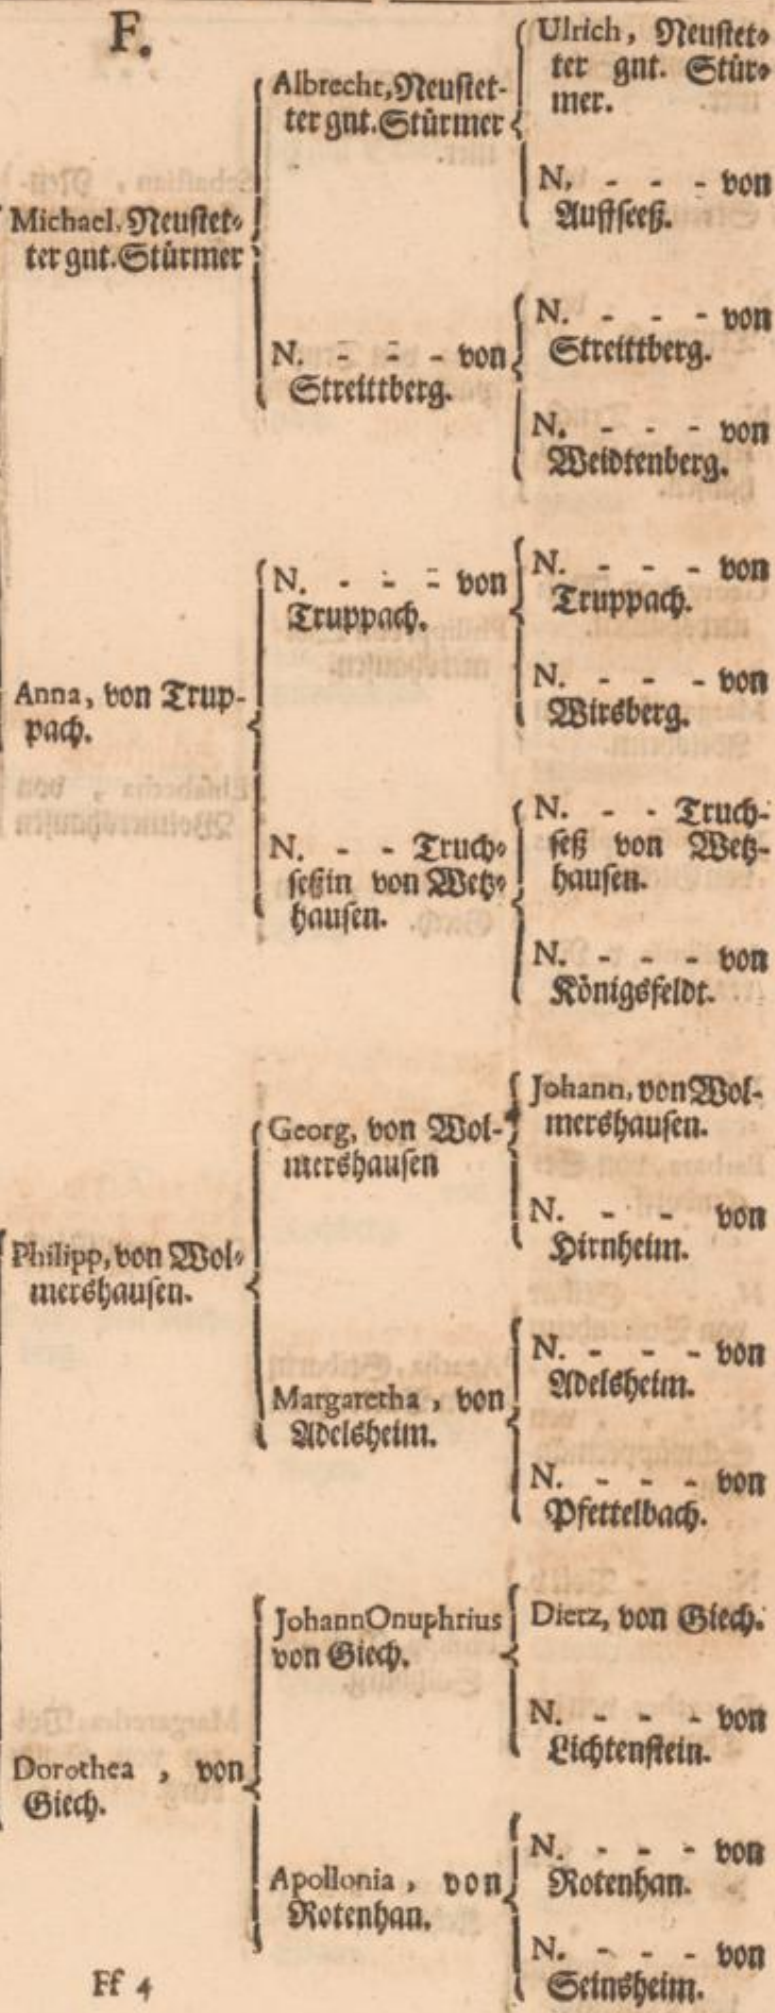 F.
Michael, Neustet-
ter gnt. Stürmer
Anna, von Trup-
pach.
Philipp, von Wol-
mershausen.
Dorothea , von
Giech.
Albrecht, Neustet-
ter gnt. Stürmer
N. - - - von
Streittberg.
N. - - - von
Truppach.
N. - - Truch-
seßin von Wetz-
hausen.
Georg, von Wol-
mershausen
Margaretha , von
Adelsheim.
Johann Onuphrius
von Giech.
Apollonia , von
Rotenhan.
Ulrich, Neustet-
ter gnt. Stür-
mer.
N, - - - von
Auffseeß.
N. - - - von
Streittberg.
N. - - - von
Weidtenberg.
N. - - - von
Truppach.
N. - - - von
Wirsberg.
N. - - Truch-
seß von Wetz-
hausen.
N. - - - von
Königsfeldt.
Johann, von Wol-
mershausen.
N. - - von
Hirnheim.
N. - - - von
Adelsheim.
N. - - - von
Pfettelbach.
Dietz, von Giech.
N. - - - von
Lichtenstein.
N. - - - von
Rotenhan.
N. - - - von
Seinsheim.
Ff 4